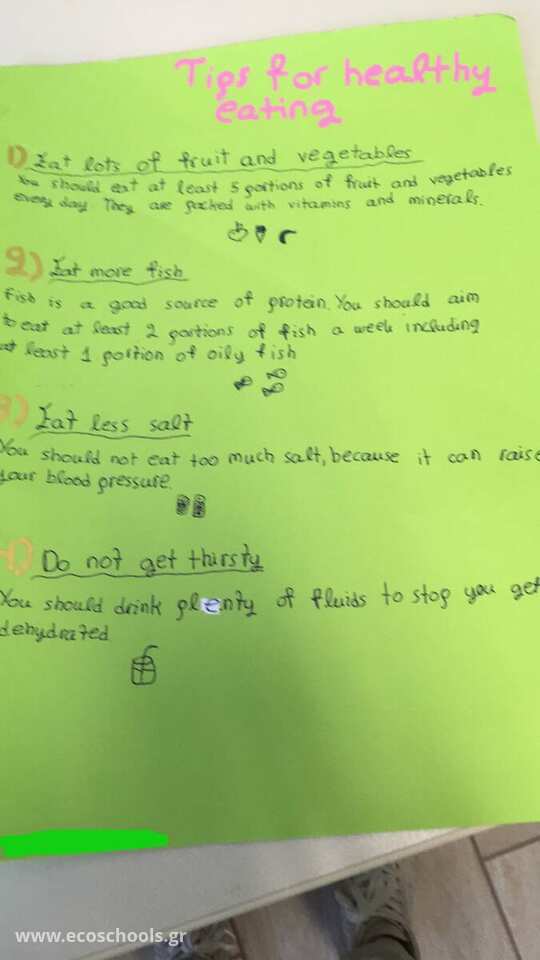 Tips for healthy
eating
1) Eat lots of fruit and vegetables
You should eat at least 5 portions of fruit and vegetables
every day. They are packed with vitamins and minerals.
2) Eat more fish
Fish is a good source of protein. You should aim
to eat at least 2 portions of fish a week including
at least 1 portion of oily fish
3) Eat less salt
You should not eat too much salt, because it can raise
your blood pressure.
4) Do not get thirsty
You should drink plenty of fluids to stop you get
dehydrated
www.ecoschools.gr